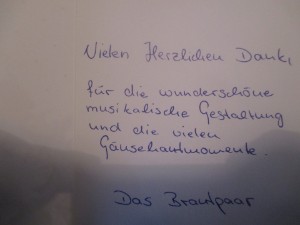 Vielen Herzlichen Dank,
für die wunderschöne
musikalische Gestaltung
und die vielen
Gänsehautmomente.
Das Brautpaar